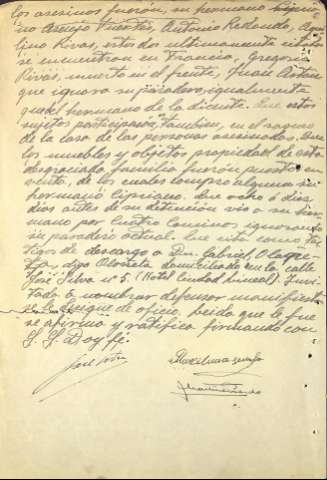 los asesinos fueron, su hermano
no Asenjo Fuentes, Antonio Redondo,
tino Rivas, estos dos ultimamente
se encuentran en Francia, Gregorio
Rivas, muerto en el frente, Juan
que ignora su paradero, igualmente
que el hermano de la dicente. Que estos
sujetos participaron tambien, en el saqueo
de la casa de las personas asesinadas, Que
los muebles y objetos propiedad de esta
desgraciada familia fueron puestos en
venta, de los cuales compro alguna su
hermano Cipriano. Que ocho ó diez
dias antes de su detención vio a su her-
mano por Cuatro Caminos, ignorando
su paradero actual. Que cita como tes-
tigos de descargo a Don Gabriel,
digo Olarieta domiciliado en la calle
José Silva nº 5. (Hotel Ciudad Lineal) Invi-
tado a nombrar defensor manifiesta
se designe de oficio, leido que le fue
se afirmo y ratifica firmando con
S. S. Doy fé.